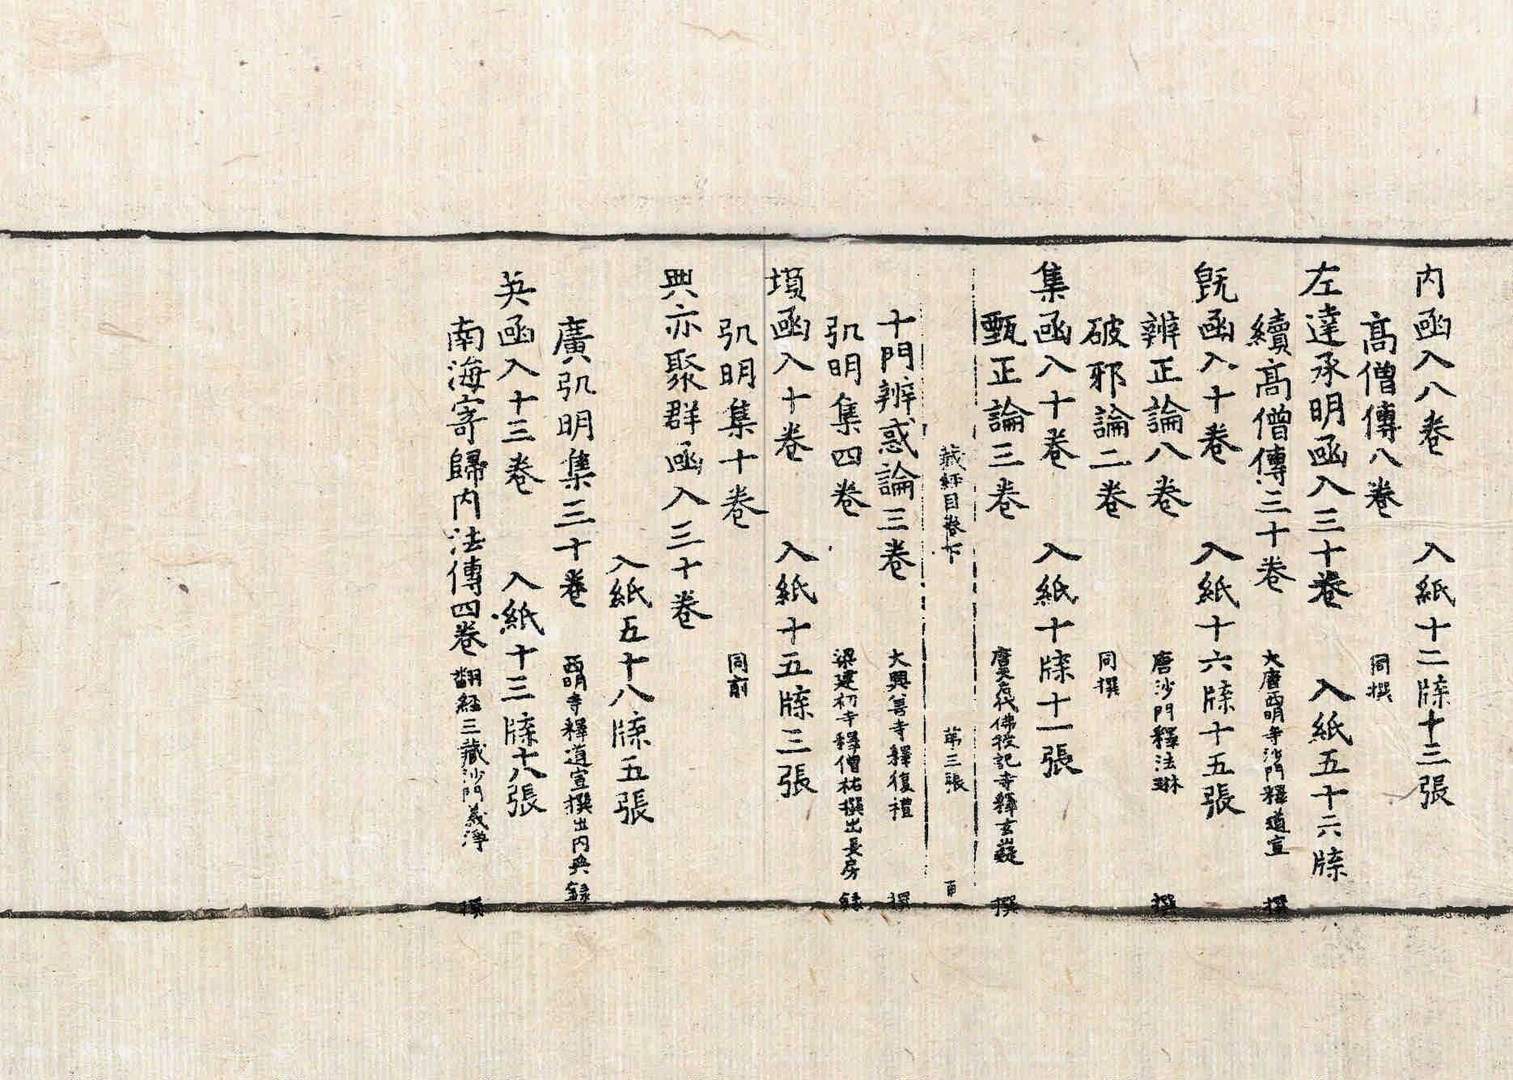 内函入八卷 入紙十二牒十三張
高僧傳八卷 同撰
左達承明函入三十卷 入紙五十六牒
續高僧傳三十卷 大唐西明寺沙門釋道宣 撰
旣函入十卷 入紙十六牒十五張
辨正論八卷 唐沙門釋法琳 撰
破邪論二卷 同撰
集函入十卷 入紙十牒十一張
甄正論三卷 唐天后代佛授記寺釋玄嶷 撰
藏經目卷下 第三張
十門辨惑論三卷 大興善寺釋復禮 撰
弘明集四卷 梁建初寺釋僧祐撰出長房錄
墳函入十卷 入紙十五牒三張
弘明集十卷 同前
典亦聚群函入三十卷
入紙五十八牒五張
廣弘明集三十卷 西明寺釋道宣撰出内典錄
英函入十三卷 入紙十三牒十八張
南海寄歸内法傳四卷 翻經三藏沙門義淨 撰